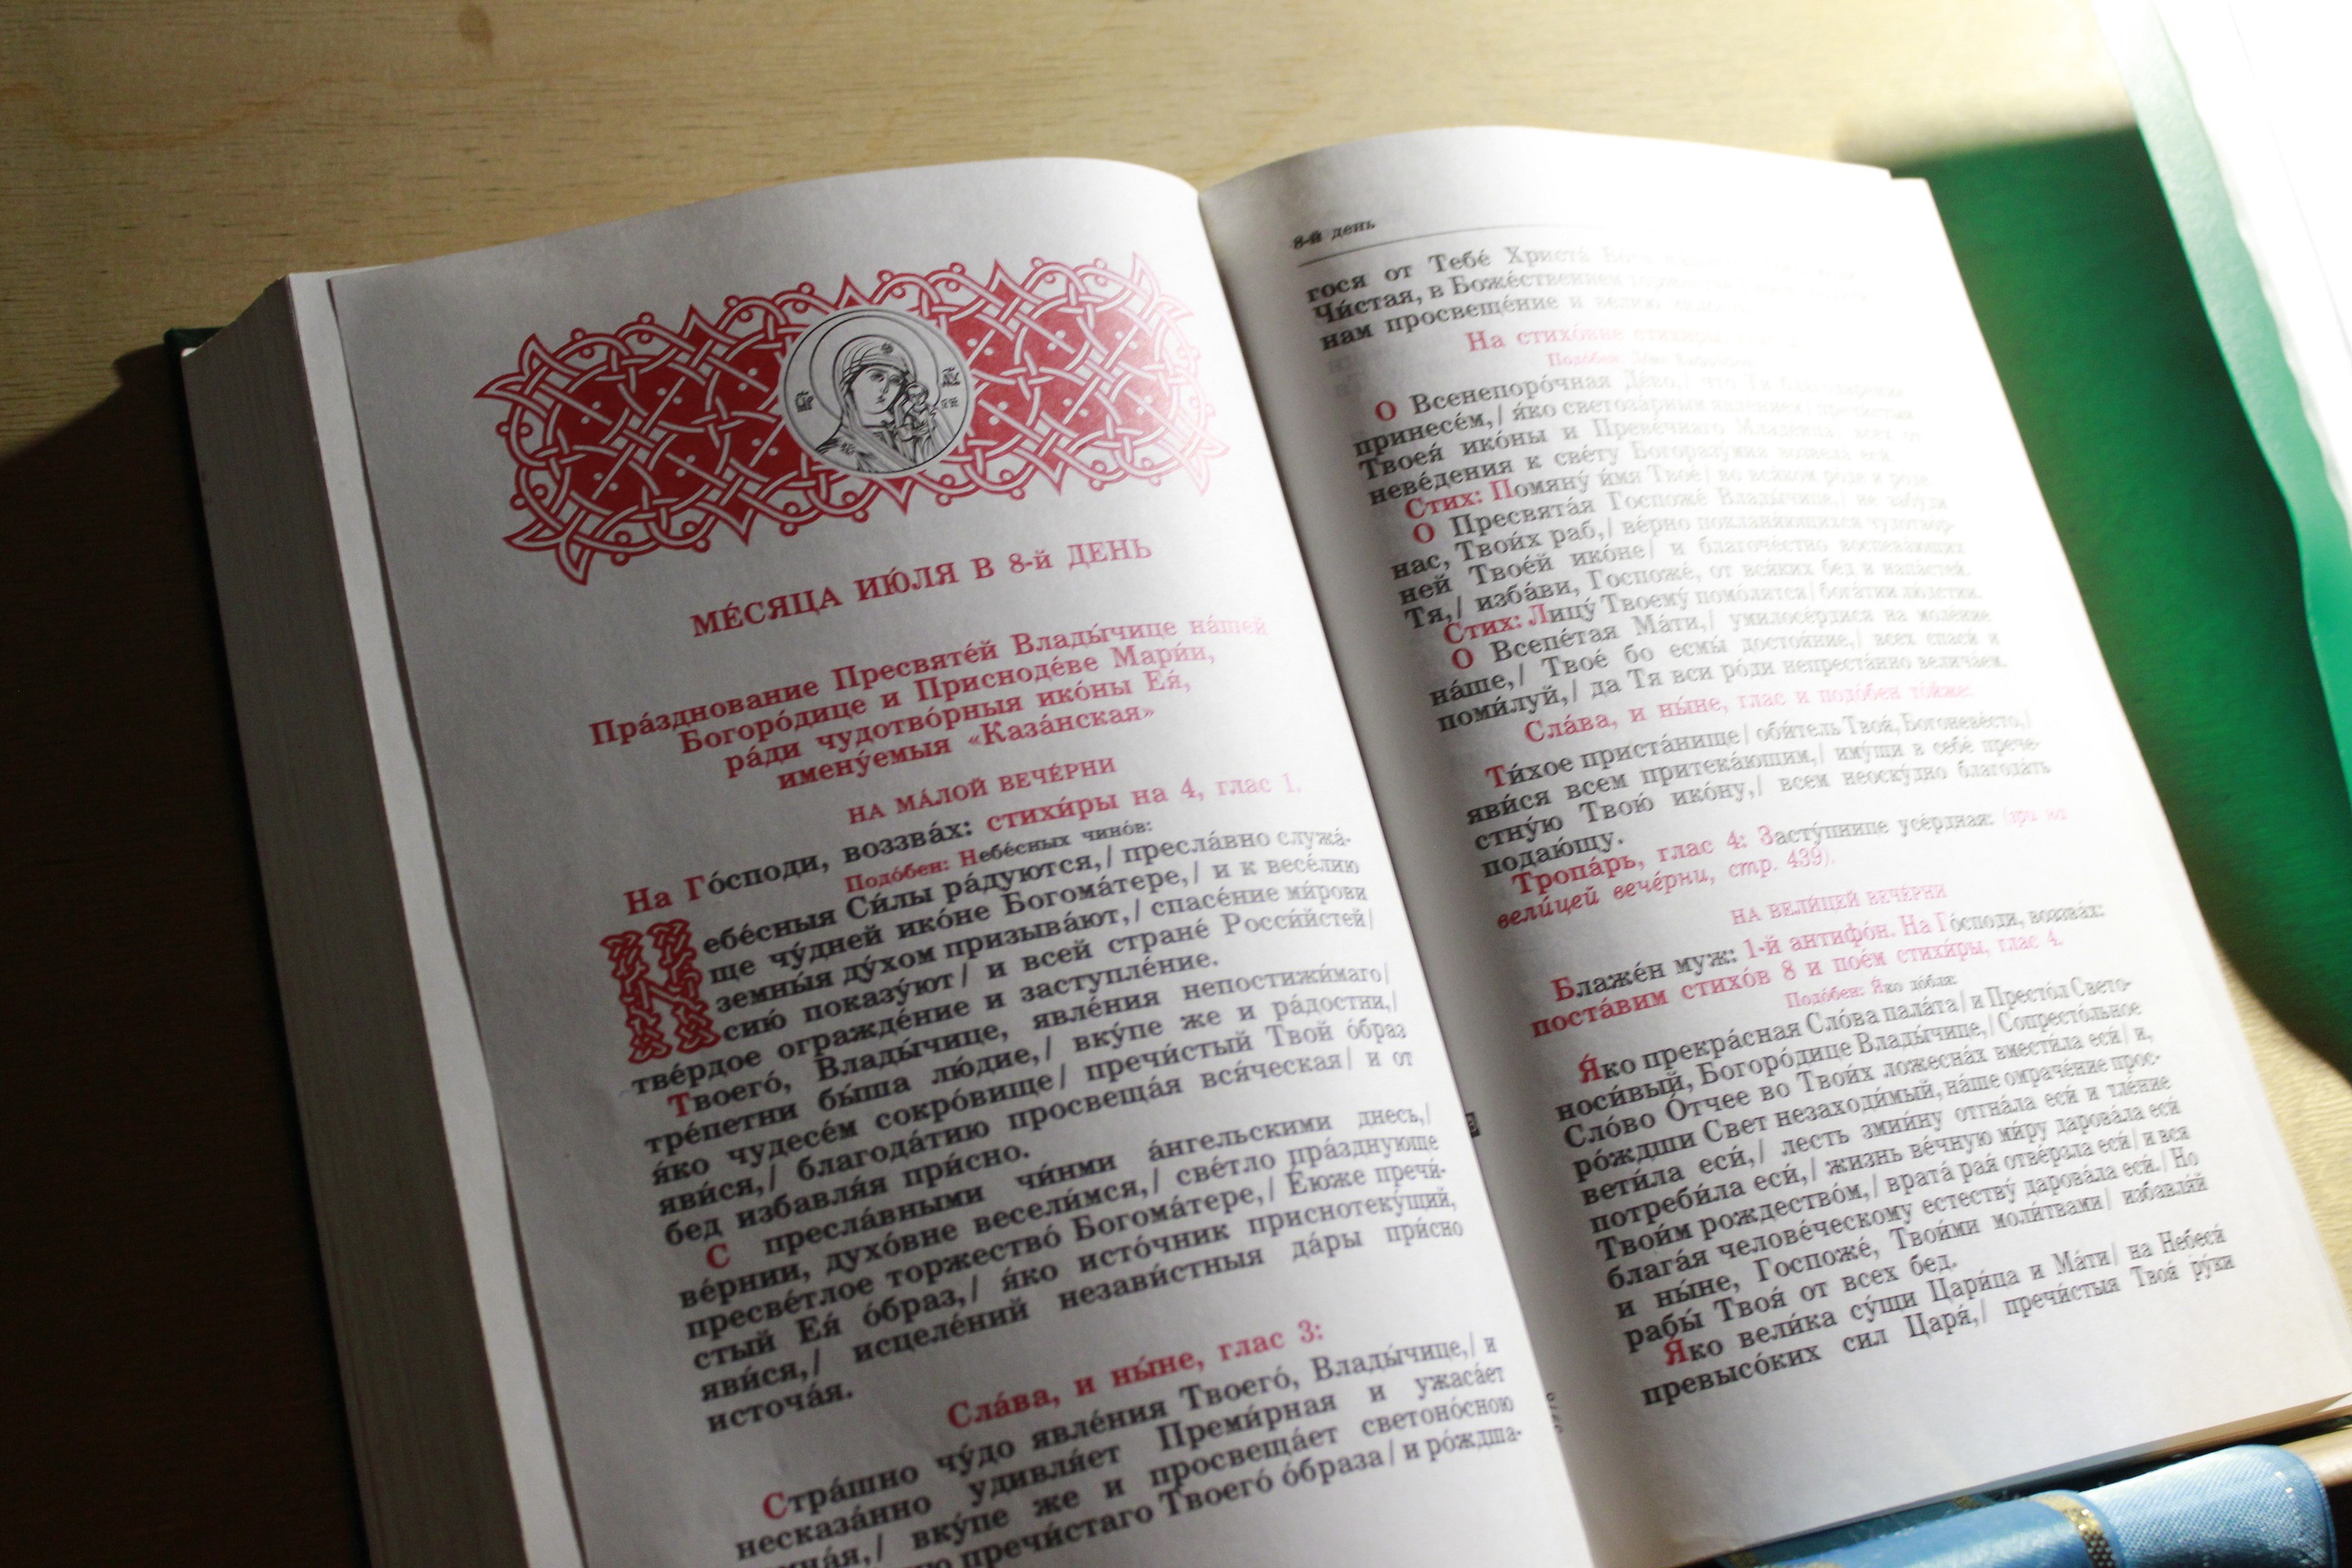 МЕ́СЯЦА ИЮ́ЛЯ В 8-й ДЕНЬ
Пра́зднование Пресвяте́й Влады́чице на́шей
Богоро́дице и Присноде́ве Мари́и,
ра́ди чудотво́рныя ико́ны Ея́,
имену́емыя «Каза́нская»
НА МА́ЛОЙ ВЕЧЕ́РНИ
На Го́споди, воззва́х: стихи́ры на 4, глас 1.
Подо́бен: Небе́сных чино́в:
Небе́сныя Си́лы ра́дуются,/ пресла́вно служа́-
ще чу́дней ико́не Богома́тере,/ и к весе́лию
земны́я ду́хом призыва́ют,/ спасе́ние ми́рови
сию́ показу́ют/ и всей стране́ Росси́йстей/
тве́рдое огражде́ние и заступле́ние.
Твоего́, Влады́чице, явле́ния непостижи́маго/
тре́петни бы́ша лю́дие,/ вку́пе же и ра́достни,/
я́ко чудесе́м сокро́вище/ пречи́стый Твой о́браз
яви́ся,/ благода́тию просвеща́я вся́ческая/ и от
бед избавля́я при́сно.
С пресла́вными чи́нми а́нгельскими днесь,/
ве́рнии, духо́вне весели́мся,/ све́тло пра́зднующе
пресве́тлое торжество́ Богома́тере,/ Е́юже пречи́-
стый Ея́ о́браз,/ я́ко исто́чник приснотеку́щий,
яви́ся,/ исцеле́ний незави́стныя да́ры при́сно
источа́я.
Сла́ва, и ны́не, глас 3:
Стра́шно чу́до явле́ния Твоего́, Влады́чице,/ и
несказа́нно удивля́ет Преми́рная и ужаса́ет
вку́пе же и просвеща́ет светоно́сною
пречи́стаго Твоего́ о́браза/ и ро́ждша-
8-й день
гося от Тебе́ Христа́
Чи́стая, в Боже́ственнем
нам просвеще́ние и ве́лию
На стихо́вне стихи́ры
Подо́бен:
О Всенепоро́чная Де́во,/ что Ти
принесе́м,/ я́ко светоза́рным явле́нием/ пречи́стыя
Твоея́ ико́ны и Преве́чнаго Младе́нца/ всех от
неве́дения к све́ту Богоразу́мия возвела́ еси́.
Стих: Помяну́ и́мя Твое́/ во вся́ком ро́де и ро́де.
О Пресвята́я Госпоже́ Влады́чице,/ не забу́ди
нас, Твои́х раб,/ ве́рно покланя́ющихся чудотво́р-
ней Твое́й ико́не/ и благоче́стно воспева́ющих
Тя,/ изба́ви, Госпоже́, от вся́ких бед и напа́стей.
Стих: Лицу́ Твоему́ помо́лятся/ бога́тии лю́дстии.
О Всепе́тая Ма́ти,/ умилосе́рдися на моле́ние
на́ше,/ Твое́ бо есмы́ достоя́ние,/ всех спаси́ и
поми́луй,/ да Тя вси ро́ди непреста́нно велича́ем.
Сла́ва, и ны́не, глас и подо́бен то́йже:
Ти́хое приста́нище/ оби́тель Твоя́, Богоневе́сто,/
яви́ся всем притека́ющим,/ иму́щи в себе́ прече-
стну́ю Твою́ ико́ну,/ всем неоску́дно благода́ть
подаю́щу.
Тропа́рь, глас 4: Засту́пнице усе́рдная: (зри на
вели́цей вече́рни, стр. 439).
НА ВЕЛИ́ЦЕЙ ВЕЧЕ́РНИ
Блаже́н муж: 1-й антифо́н. На Го́споди, воззва́х:
поста́вим стихо́в 8 и пое́м стихи́ры, глас 4.
Подо́бен: Я́ко до́бля:
Я́ко прекра́сная Сло́ва пала́та/ и Престо́л Свето-
но́сивый, Богоро́дице Влады́чице,/ Сопресто́льное
Сло́во О́тчее во Твои́х ложесна́х вмести́ла еси́/ и,
ро́ждши Свет незаходи́мый, на́ше омраче́ние прос-
вети́ла еси́,/ лесть змии́ну отгна́ла еси́ и тле́ние
потреби́ла еси́,/ жизнь ве́чную ми́ру дарова́ла еси́
Твои́м рождество́м,/ врата́ рая́ отве́рзла еси́/ и вся
блага́я челове́ческому естеству́ дарова́ла еси́./ Но
и ны́не, Госпоже́, Твои́ми моли́твами/ избавля́й
рабы́ Твоя́ от всех бед.
Я́ко вели́ка су́щи Цари́ца и Ма́ти/ на Небеси́
превысо́ких сил Царя́,/ пречи́стыя Твоя́ ру́ки